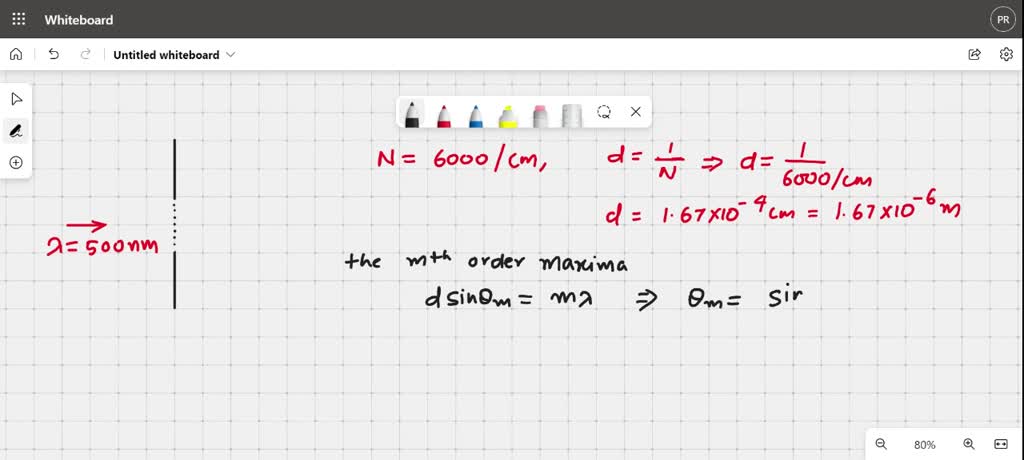 Whiteboard
PR
Untitled whiteboard
N = 6000/cm, d = 1/N ⇒ d = 1/6000/cm
d = 1.67×10⁻⁴ cm = 1.67×10⁻⁶ m
λ = 500nm
the mth order maxima
d sinθm = mλ ⇒ θm = sin
80%